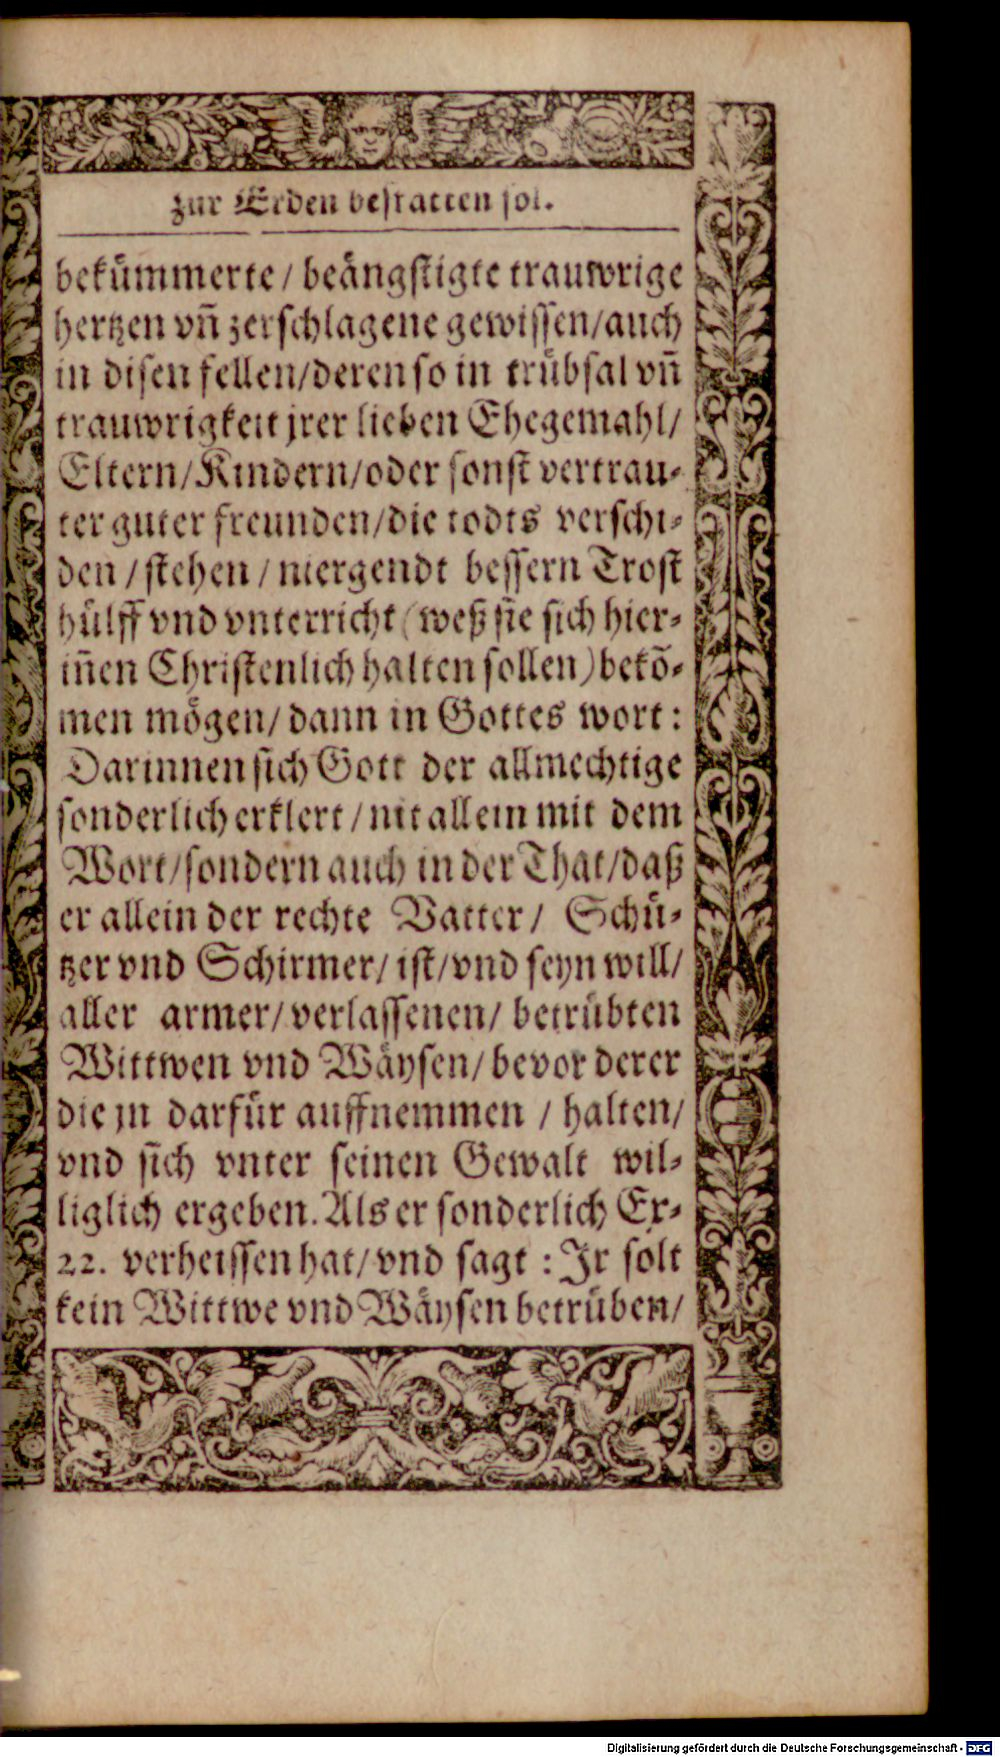 zur Erden bestatten sol.
bekümmerte / beängstigte trauwrige
hertzen vñ zerschlagene gewissen/auch
in disen fellen/deren so in trübsal vñ
trauwrigkeit jrer lieben Ehegemahl/
Eltern/Kindern/oder sonst vertrau-
ter guter freunden/die todts verschi-
den / stehen / niergendt bessern Trost
hülff vnd vnterricht (weß sie sich hier-
iñen Christenlich halten sollen) bekõ-
men mögen/ dann in Gottes wort :
Darinnen sich Gott der allmechtige
sonderlich erklert / nit allein mit dem
Wort/sondern auch in der That/daß
er allein der rechte Vatter / Schü-
tzer vnd Schirmer/ ist/vnd seyn will/
aller armer/ verlassenen/ betrübten
Wittwen vnd Wäysen/ bevor derer
die jn darfür auffnemmen / halten/
vnd sich vnter seinen Gewalt wil-
liglich ergeben. Als er sonderlich Ex-
22. verheissen hat/ vnd sagt : Jr solt
kein Wittwe vnd Wäysen betrüben/
Digitalisierung gefördert durch die Deutsche Forschungsgemeinschaft - DFG